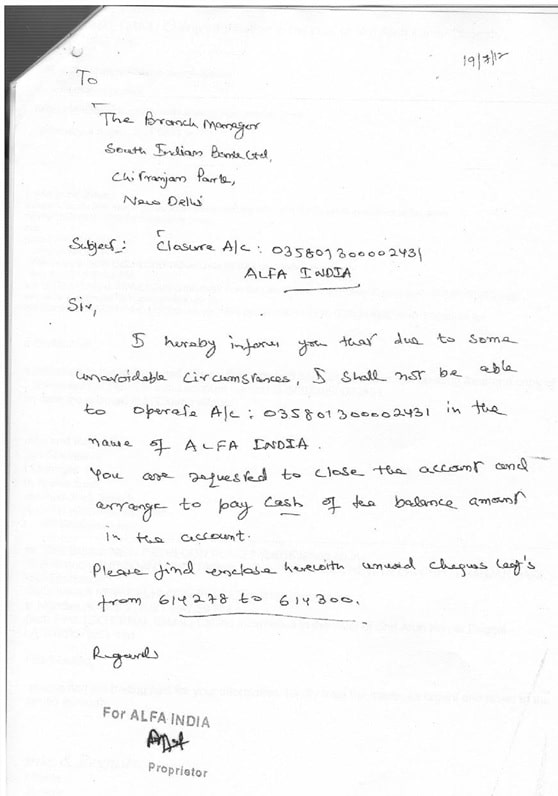 19/7/12
To
The Branch Manager
South Indian Bank Ltd,
Chitranjan Park,
New Delhi
Subject: Closure A/c : 0358013000002431
ALFA INDIA
Sir,
I hereby inform you that due to some
unavoidable circumstances, I shall not be able
to operate A/c : 0358013000002431 in the
name of ALFA INDIA.
You are requested to close the account and
arrange to pay cash of the balance amount
in the account.
Please find enclose herewith unused cheques leaf's
from 614278 to 614300.
Regards
For ALFA INDIA
Proprietor